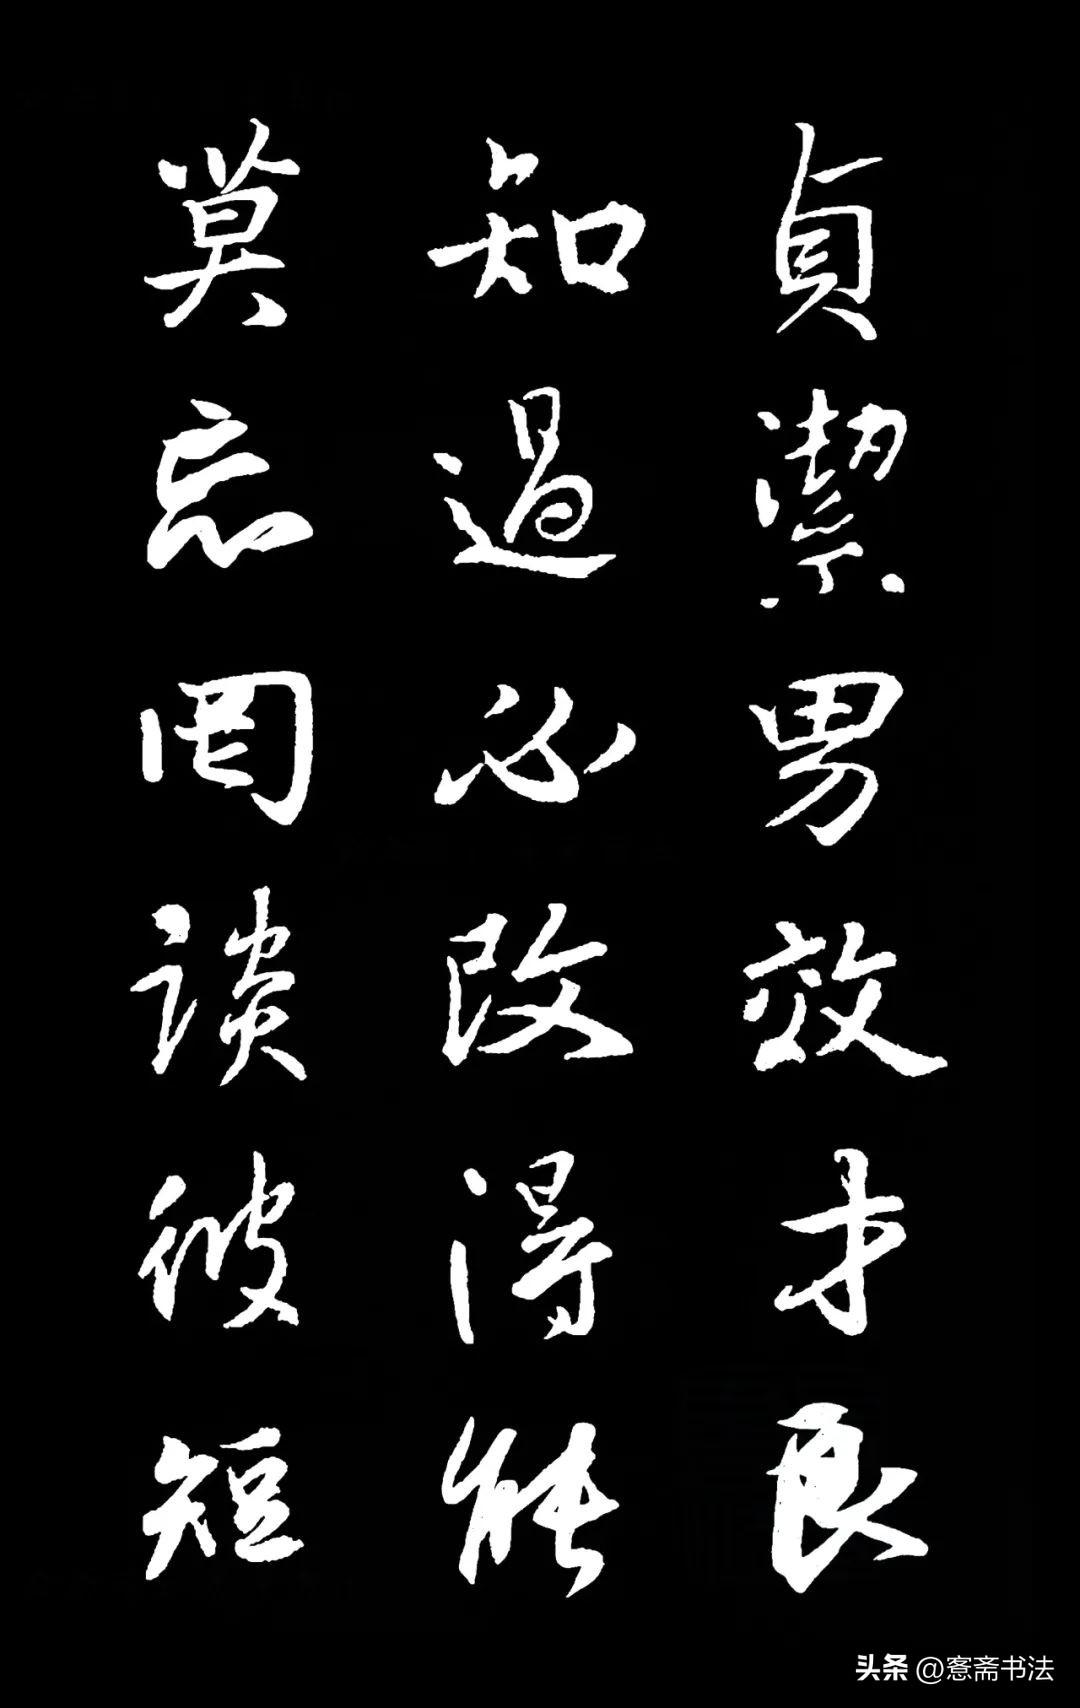 貞潔男效才良
知過必改得能
莫忘罔談彼短
头条 @窓斋书法